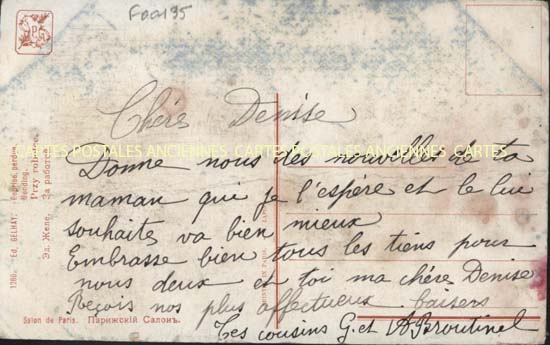 F001195
Chère Denise
CARTES POSTALES ANCIENNES CARTES POSTALES ANCIENNES CARTES
Donne nous des nouvelles de ta
maman qui je l'espère et le lui
souhaite va bien mieux
Embrasse bien tous les tiens pour
nous deux et toi ma chère Denise
Reçois nos plus affectueux baisers
Tes cousins G. et A Broutinel
1380. Ed. GELHAY.
Mending.
Przy robotie.
Эд. Желе. За работой.
Salon de Paris. Парижскій Салонъ.